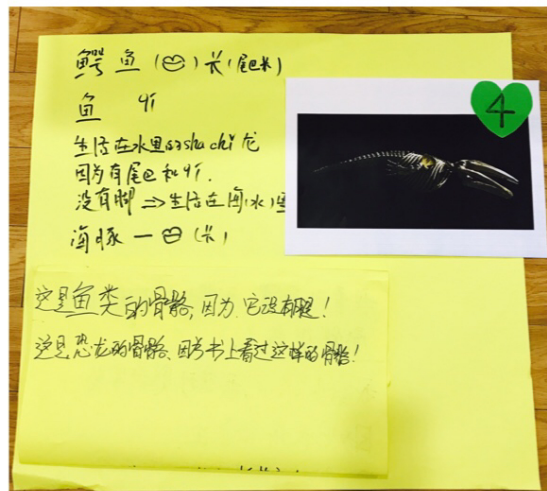 鳄鱼（）长（尾巴长）
鱼 qi
生活在水里sasha chi 龙
因为有尾巴和qi.
没有脚⇒生活在海（水）里
海豚一（长）
4
这是鱼类的骨骼，因为它没有腿！
这是恐龙的骨骼，因为书上看过这样的骨骼！